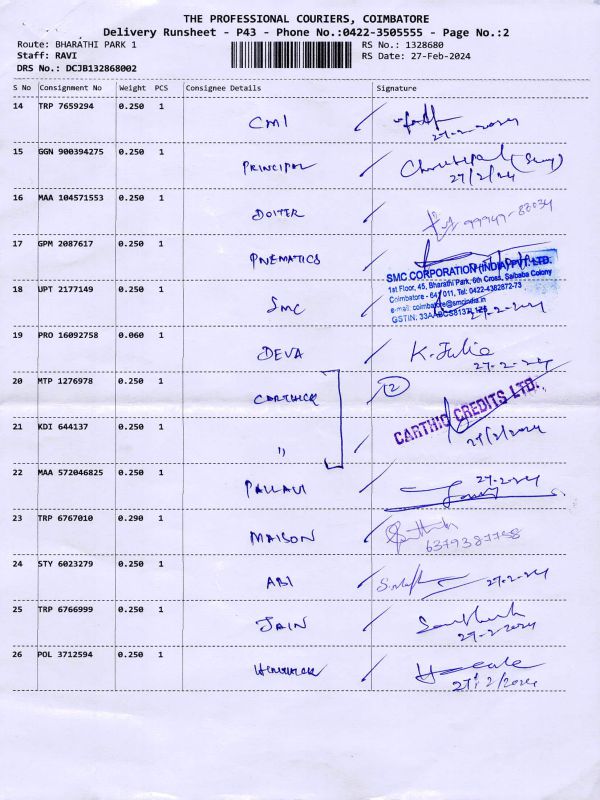 THE PROFESSIONAL COURIERS, COIMBATORE
Delivery Runsheet - P43 - Phone No.:0422-3505555 - Page No.:2
Route: BHARATHI PARK 1 RS No.: 1328680
Staff: RAVI RS Date: 27-Feb-2024
DRS No.: DCJB132868002
S No Consignment No Weight PCS Consignee Details Signature
14 TRP 7659294 0.250 1 CMI
27-2-2024
15 GGN 900394275 0.250 1 PRINCIPAL
27/2/24
16 MAA 104571553 0.250 1 DOITER 99947-83034
17 GPM 2087617 0.250 1 PNEMATICS
SMC CORPORATION (INDIA) PVT. LTD.
1st Floor, 45, Bharathi Park, 6th Cross, Saibaba Colony
Coimbatore - 641 011, Tel: 0422-4382872-73
e-mail: coimbatore@smcindia.in
18 UPT 2177149 0.250 1 SMC 27-2-2024
19 PRO 16092758 0.060 1 DEVA K. Julie
27-2-24
20 MTP 1276978 0.250 1 CARTHICK 2
CARTHIC CREDITS LTD.
21 KDI 644137 0.250 1 " 27/2/2024
22 MAA 572046825 0.250 1 PALLAVI 27-2-24
23 TRP 6767010 0.290 1 MAISON
6379387758
24 STY 6023279 0.250 1 ABI 27-2-24
25 TRP 6766999 0.250 1 JAIN
27-2-2024
26 POL 3712594 0.250 1
27/2/2024